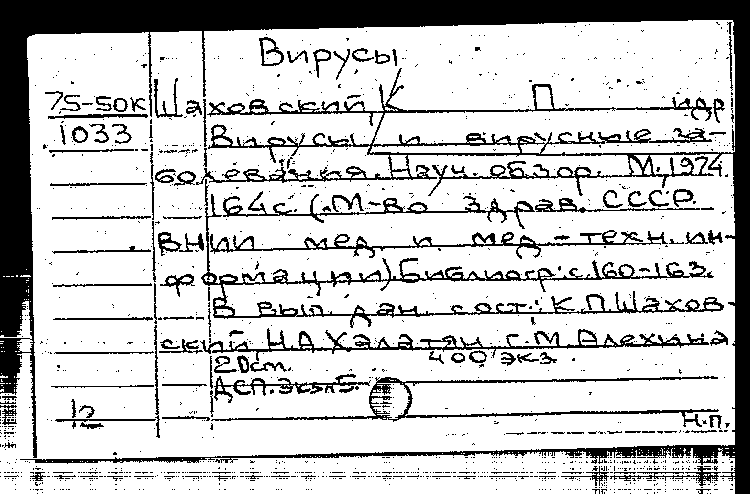 Вирусы
75-50К Шаховский, К П идр
1033 Вирусы и вирусные за-
болевания. Науч. обзор. М., 1974
164с. (.М-во здрав. СССР.
ВНИИ мед. и мед-техн. ин-
формации) Библиогр: с.160-163.
В вып. дан. сост.: К.П.Шахов-
ский, Н.А.Халатян, Г.М.Алехина
20см. 400 экз.
ДСП. Экз.№5.
12
Н.П.